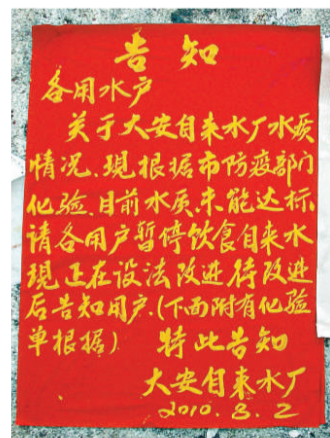 告知
各用水户
关于大安自来水厂水质
情况、現根据市防疫部门
化验、目前水质、未能达标、
请各用户暂停饮食自来水
現正在设法改进待改进
后告知用户、(下面附有化验
单根据) 特此告知
大安自来水厂
2010.8.2